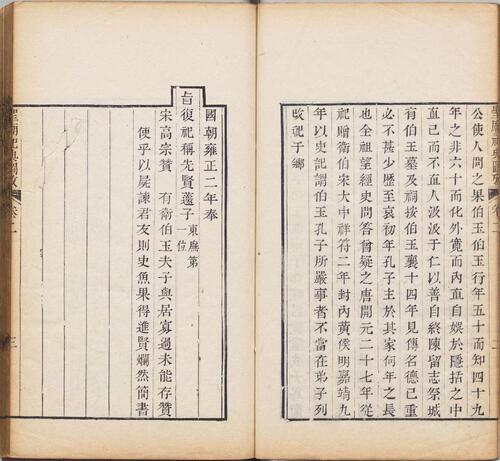 公使人問之果伯玉伯玉行年五十而知四十九
年之非六十而化外寬而內直自娛於隱括之中
直己而不直人汲汲于仁以善自終陳留志祭城
有伯玉墓及祠按伯玉襄十四年見傳名德已重
必不甚少歷至哀初年孔子主於其家何年之長
也全祖望經史問答曾疑之唐開元二十七年從
祀贈衛伯宋大中祥符二年封內黃侯明嘉靖九
年以史記謂伯玉孔子所嚴事者不當在弟子列
改祀于鄉
國朝雍正二年奉
旨復祀稱先賢蘧子東廡第一位
宋高宗贊 有衛伯玉夫子與居寡過未能存贊
使乎以屍諫君友則史魚果得進賢斕然簡書
三